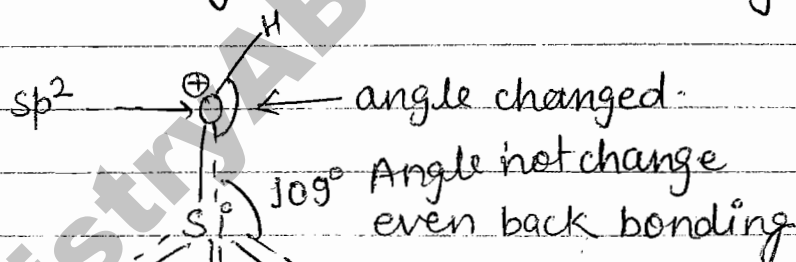 H
⊕
sp² O angle changed.
109° Angle not change
Si even back bonding
istryAB